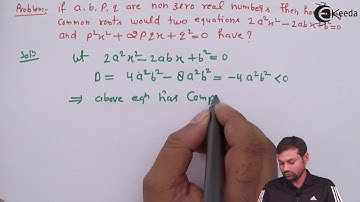 Ekeeda
Problem:- if a, b, P, q are non zero real numbers then how
common roots would two equations 2a²x² - 2abx + b² = 0
and P²x² + 2Pqx + q² = 0 have?
Solⁿ) let 2a²x² - 2abx + b² = 0
D = 4a²b² - 8a²b² = -4a²b² < 0
⇒ above eqⁿ has Comp